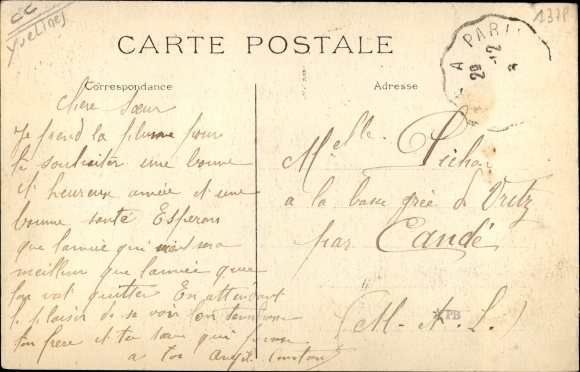 CC
Yvelines
137P
CARTE POSTALE
A PARI
29 -12
Correspondance
Adresse
Chère sœur
Je prend la plume pour
te souhaiter une bonne
et heureux année et une
bonne santé Esperon
que lannée qui vient sera
meilleur que lannée que
lon vat quitter En attendant
le plaisir de se voir ton
ton frere et ta sœur qui pense
a toi Constant
Melle Pichon
a la basse grée de Vritz
par Candé
(M. et. L.)
PB